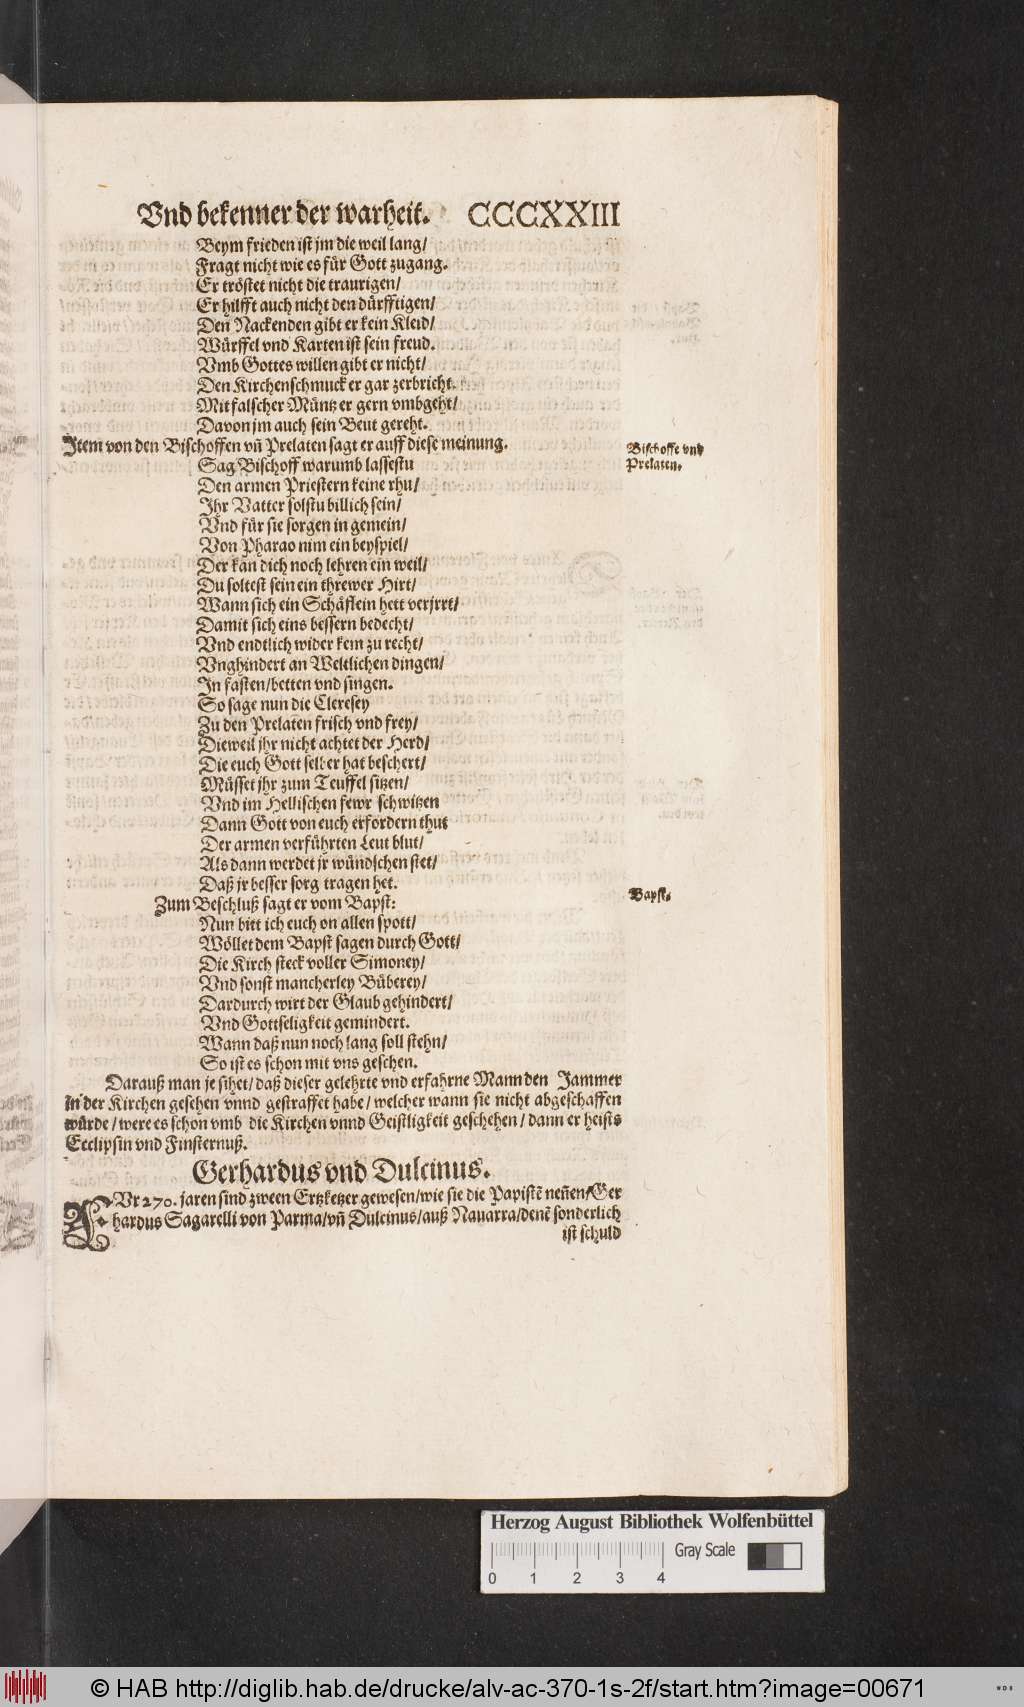 Vnd bekenner der warheit. CCCXXIII
Beym frieden ist jm die weil lang/
Fragt nicht wie es für Gott zugang.
Er tröstet nicht die traurigen/
Er hilfft auch nicht den dürfftigen/
Den Nackenden gibt er kein Kleid/
Würffel vnd Karten ist sein freud.
Vmb Gottes willen gibt er nicht/
Den Kirchenschmuck er gar zerbricht.
Mit falscher Müntz er gern vmbgeht/
Davon jm auch sein Beut gereht.
Item von den Bischoffen vñ Prelaten sagt er auff diese meinung.
Bischoffe vnd
Prelaten.
Sag Bischoff warumb lassestu
Den armen Priestern keine rhu/
Ihr Vatter solstu billich sein/
Vnd für sie sorgen in gemein/
Von Pharao nim ein beyspiel/
Der kan dich noch lehren ein weil/
Du soltest sein ein threwer Hirt/
Wann sich ein Schäflein hett verjrrt/
Damit sich eins bessern bedecht/
Vnd endtlich wider kem zu recht/
Vnghindert an Weltlichen dingen/
In fasten/betten vnd singen.
So sage nun die Cleresey
Zu den Prelaten frisch vnd frey/
Dieweil jhr nicht achtet der Herd/
Die euch Gott selber hat beschert/
Müsset jhr zum Teuffel sitzen/
Vnd im Hellischen fewr schwitzen
Dann Gott von euch erfordern thut
Der armen verführten Leut blut/
Als dann werdet jr wündschen stet/
Daß jr besser sorg tragen het.
Zum Beschluß sagt er vom Bapst:
Bapst.
Nun bitt ich euch on allen spott/
Wöllet dem Bapst sagen durch Gott/
Die Kirch steck voller Simoney/
Vnd sonst mancherley Büberey/
Dardurch wirt der Glaub gehindert/
Vnd Gottseligkeit gemindert.
Wann daß nun noch lang soll stehn/
So ist es schon mit vns geschen.
Darauß man je sihet/ daß dieser gelehrte vnd erfahrne Mann den Jammer
in der Kirchen gesehen vnnd gestraffet habe/ welcher wann sie nicht abgeschaffen
würde/ were es schon vmb die Kirchen vnnd Geistligkeit geschehen/ dann er heists
Ecclipsin vnd Finsternuß.
Gerhardus vnd Dulcinus.
FVr 270. jaren sind zween Ertzketzer gewesen/wie sie die Papistẽ neñen/Ger
hardus Sagarelli von Parma/vñ Dulcinus/auß Nauarra/denẽ sonderlich
ist schuld
Herzog August Bibliothek Wolfenbüttel
Gray Scale
0 1 2 3 4
© HAB http://diglib.hab.de/drucke/alv-ac-370-1s-2f/start.htm?image=00671